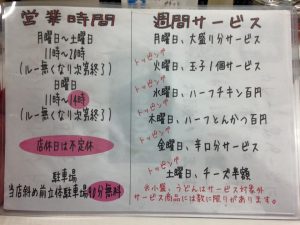 営業時間
月曜日〜土曜日
11時〜20時
(ルー無くなり次第終了)
日曜日
11時〜14時
(ルー無くなり次第終了)
店休日は不定休
駐車場
当店斜め前立体駐車場40分無料
週間サービス
月曜日、大盛り分サービス
トッピング
火曜日、玉子1個サービス
トッピング
水曜日、ハーフチキン百円
トッピング
木曜日、ハーフとんかつ百円
トッピング
金曜日、辛口分サービス
トッピング
土曜日、チーズ半額
※小盛、うどんはサービス対象外
サービス商品には数に限りがあります。